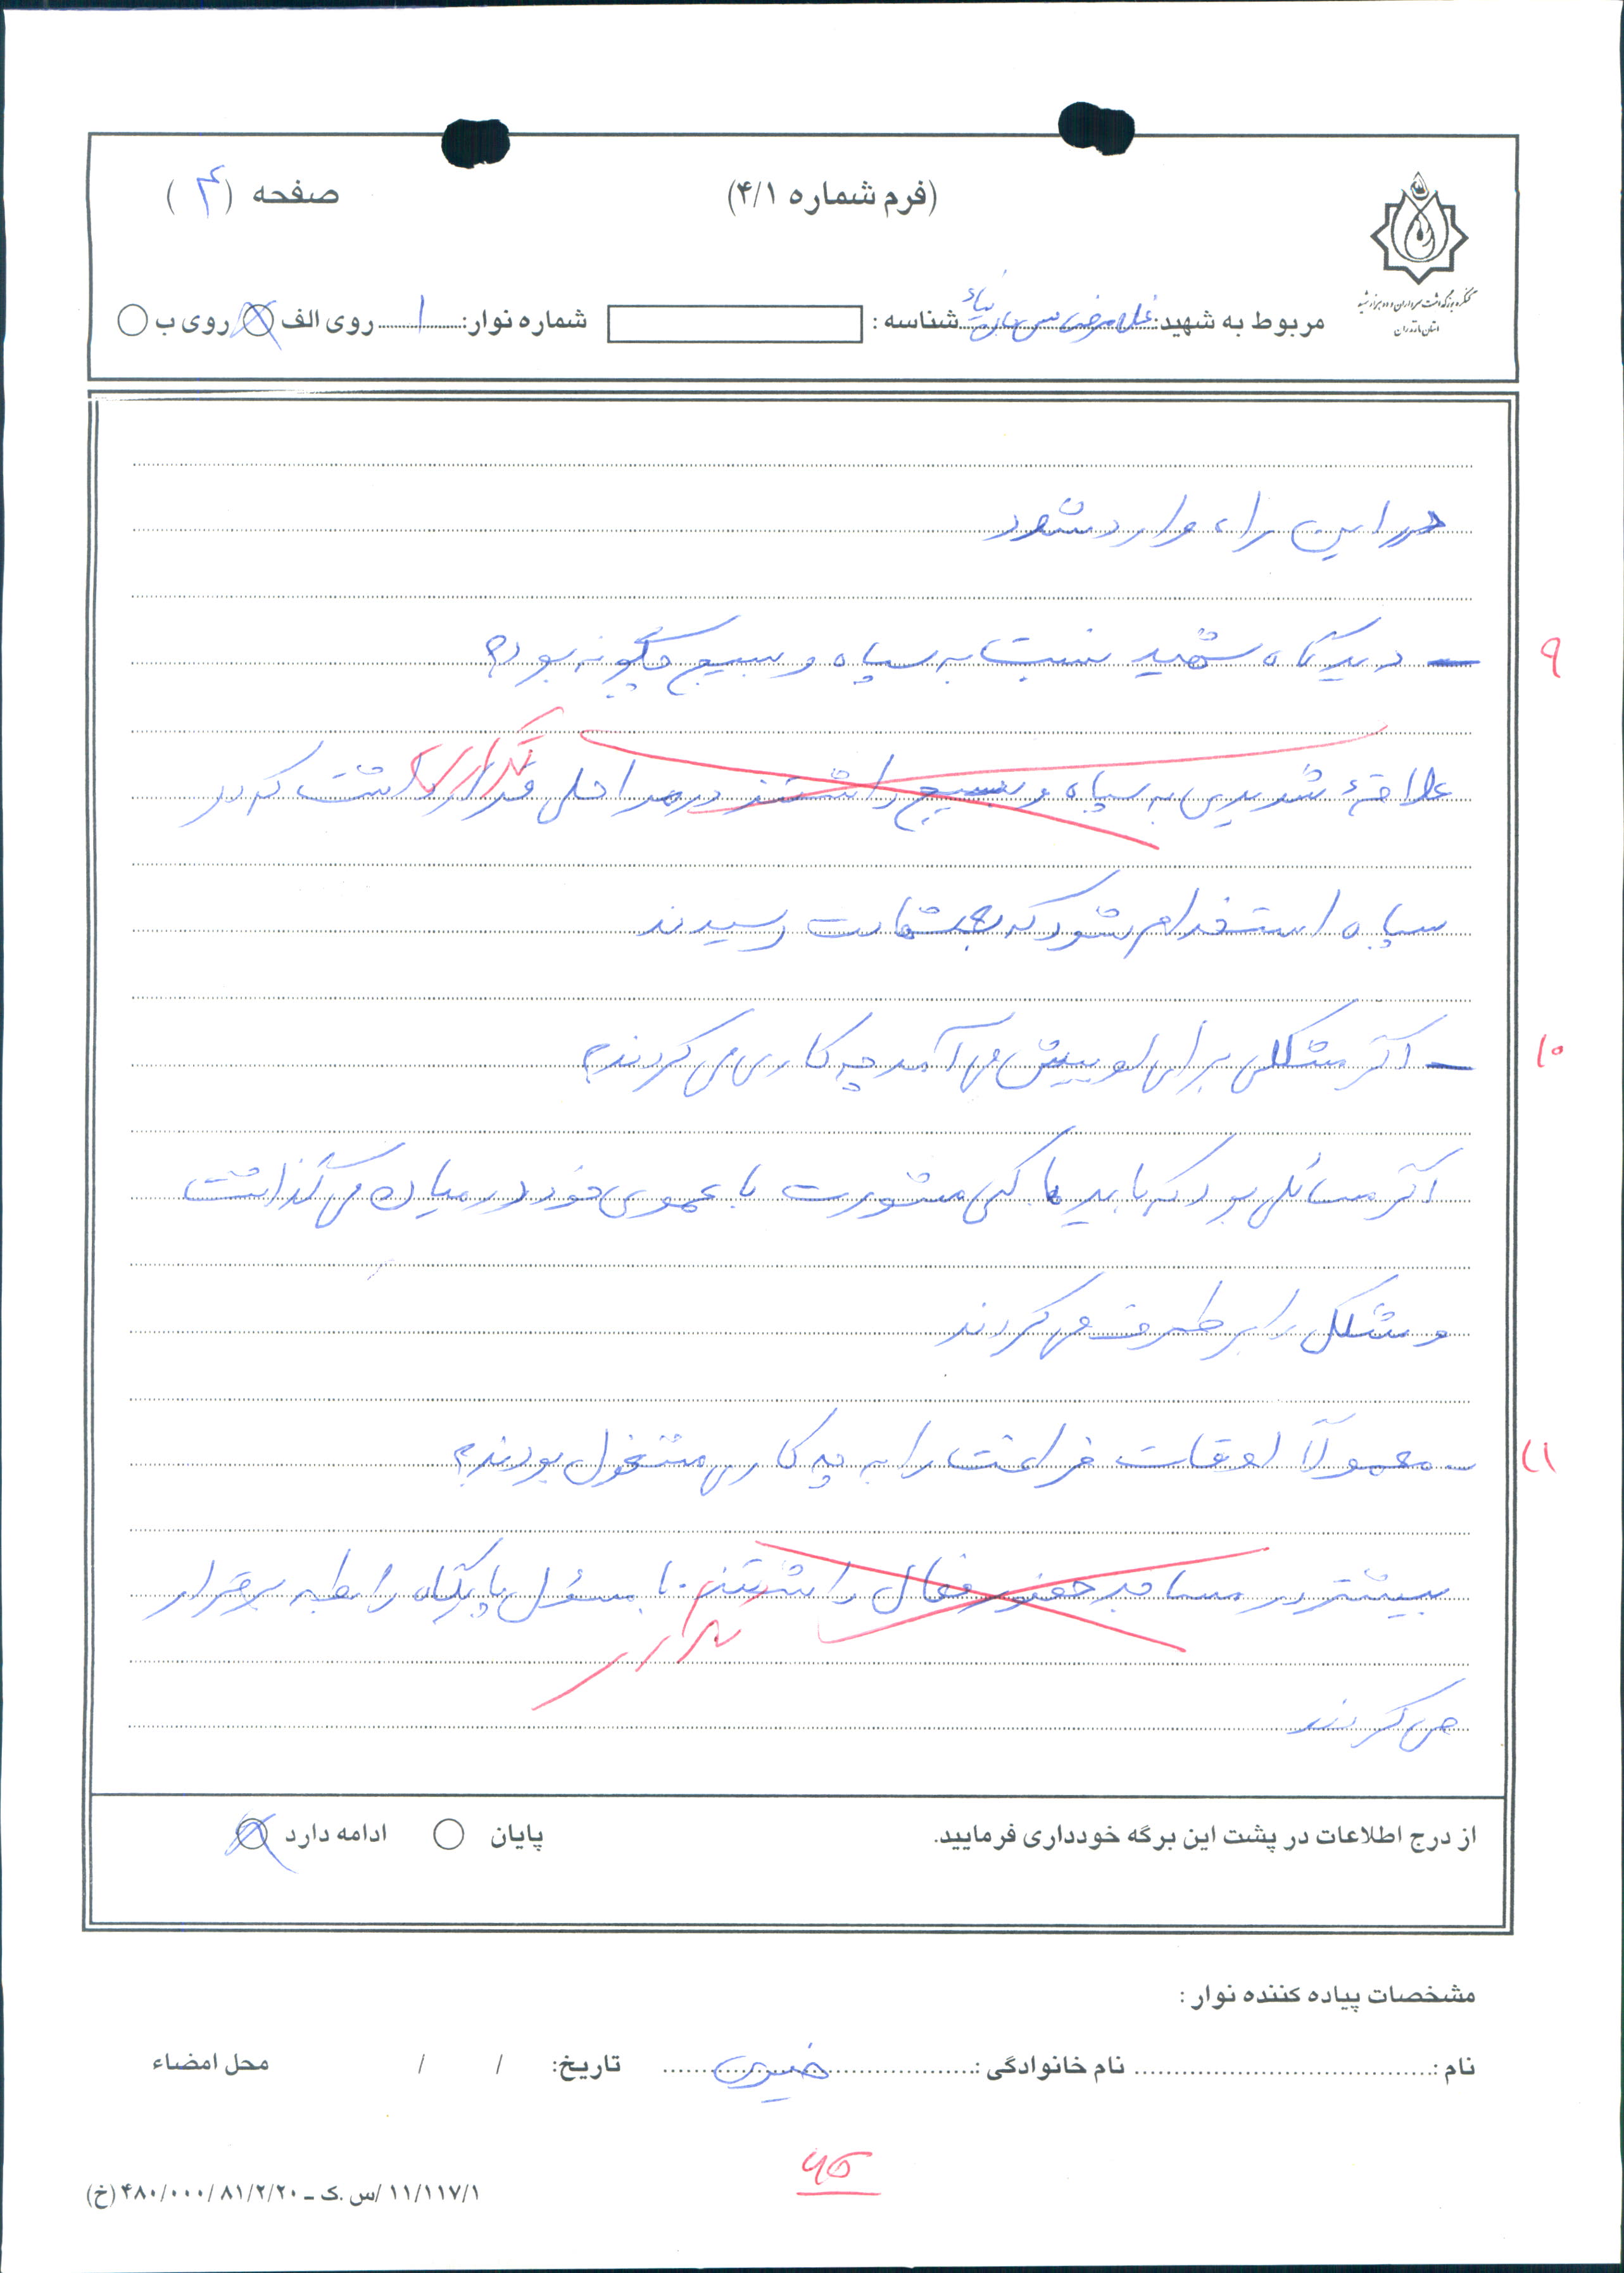 (فرم شماره ۴/۱)
صفحه (۴)
کنگره بزرگداشت سرداران و ده هزار شهید
استان مازندران
مربوط به شهید: شناسه : شماره نوار: ۱ روی الف روی ب
در این راه وارد شود
۹ - دیدگاه شهید نسبت به سپاه و بسیج چگونه بود؟
علاقهٔ شدیدی به سپاه و بسیج داشتند در مراحلی قرار داشت که در
تکراری
سپاه استخدام شود که به شهادت رسیدند
۱۰ - اگر مشکلی برای او پیش می آمد چه کاری می کردند؟
اگر مسائلی بود که باید با کسی مشورت با عموی خود در میان می گذاشت
و مشکل را بر طرف می کردند
۱۱ - معمولاً اوقات فراغت را به چه کاری مشغول بودند؟
بیشتر در مساجد حضور فعال داشتند. با مسئول پایگاه رابطه برقرار
تکراری
می کردند
از درج اطلاعات در پشت این برگه خودداری فرمایید. پایان ادامه دارد
مشخصات پیاده کننده نوار :
نام : نام خانوادگی : تاریخ: / / محل امضاء
۱۱/۱۱۷/۱ /س .ک ـ ۴۸۰/۰۰۰/۸۱/۲/۲۰ (خ)